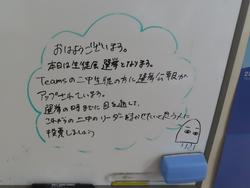 おはようございます。
本日は生徒会選挙となります。
Teamsの二中生徒の方に選挙公報が
アップされています。
選挙の時までに目を通して、
これからの二中のリーダーを任せたいと思う人に
投票しましょう